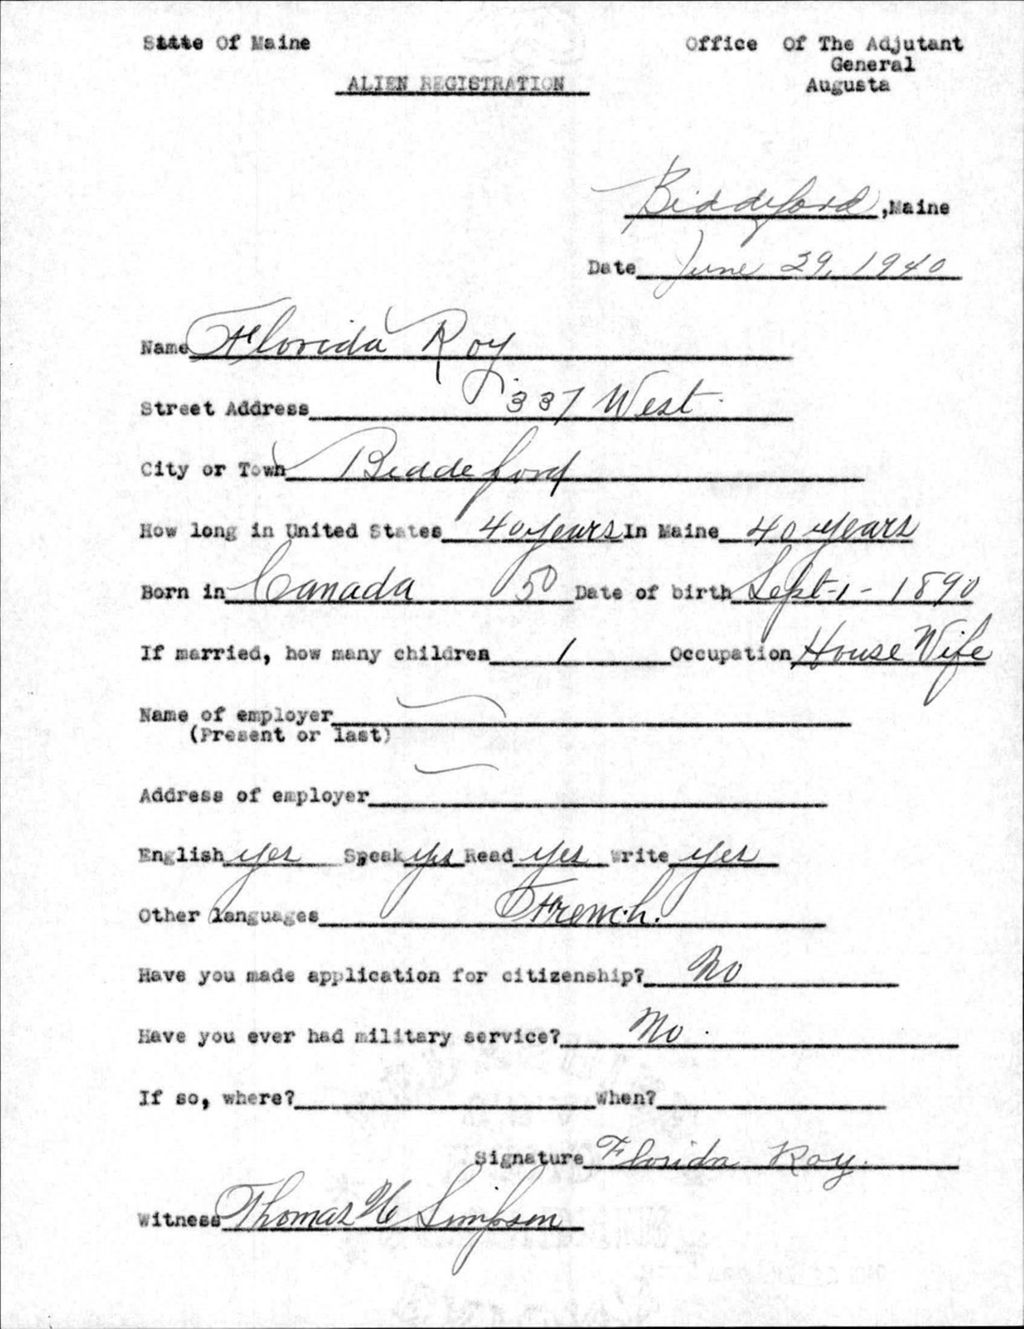 State Of Maine
Office Of The Adjutant
General
Augusta
ALIEN REGISTRATION
Biddeford, Maine
Date June 29, 1940
Name Florida Roy
Street Address 337 West
City or Town Biddeford
How long in United States 40 years In Maine 40 years
Born in Canada 50 Date of birth Sept-1-1890
If married, how many children 1 Occupation House Wife
Name of employer
(Present or last)
Address of employer
English yes Speak yes Read yes Write yes
Other languages French.
Have you made application for citizenship? No
Have you ever had military service? No.
If so, where? When?
Signature Florida Roy.
Witness Thomas W Simpson